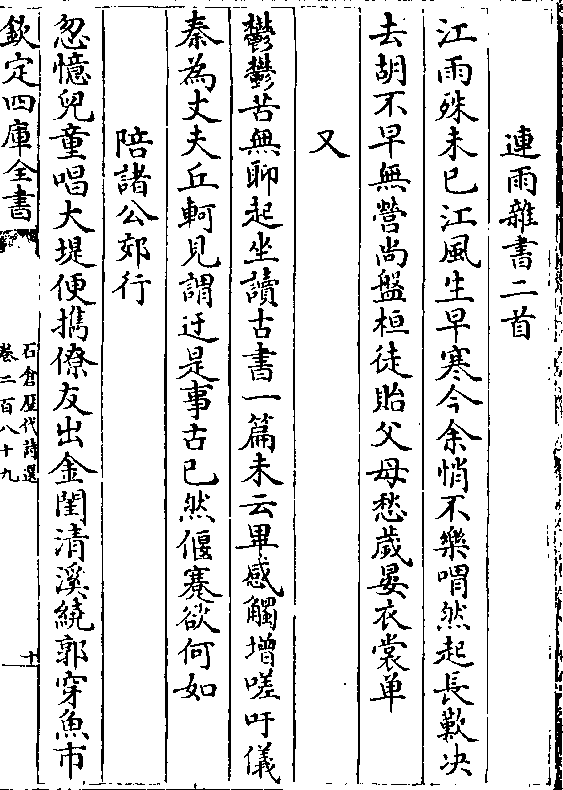 連雨雜書二首
江雨殊未已江風生早寒今余悄不樂喟然起長歎决
去胡不早無營尚盤桓徒貽父母愁歲晏衣裳单
又
鬱鬱苦無聊起坐讀古書一篇未云畢感觸增嗟吁儀
秦為丈夫丘軻見謂迂是事古已然偃蹇欲何如
陪諸公郊行
忽憶兒童唱大堤便攜僚友出金閨清溪繞郭穿魚市
欽定四庫全書
石倉歴代詩選
卷二百八十九
十